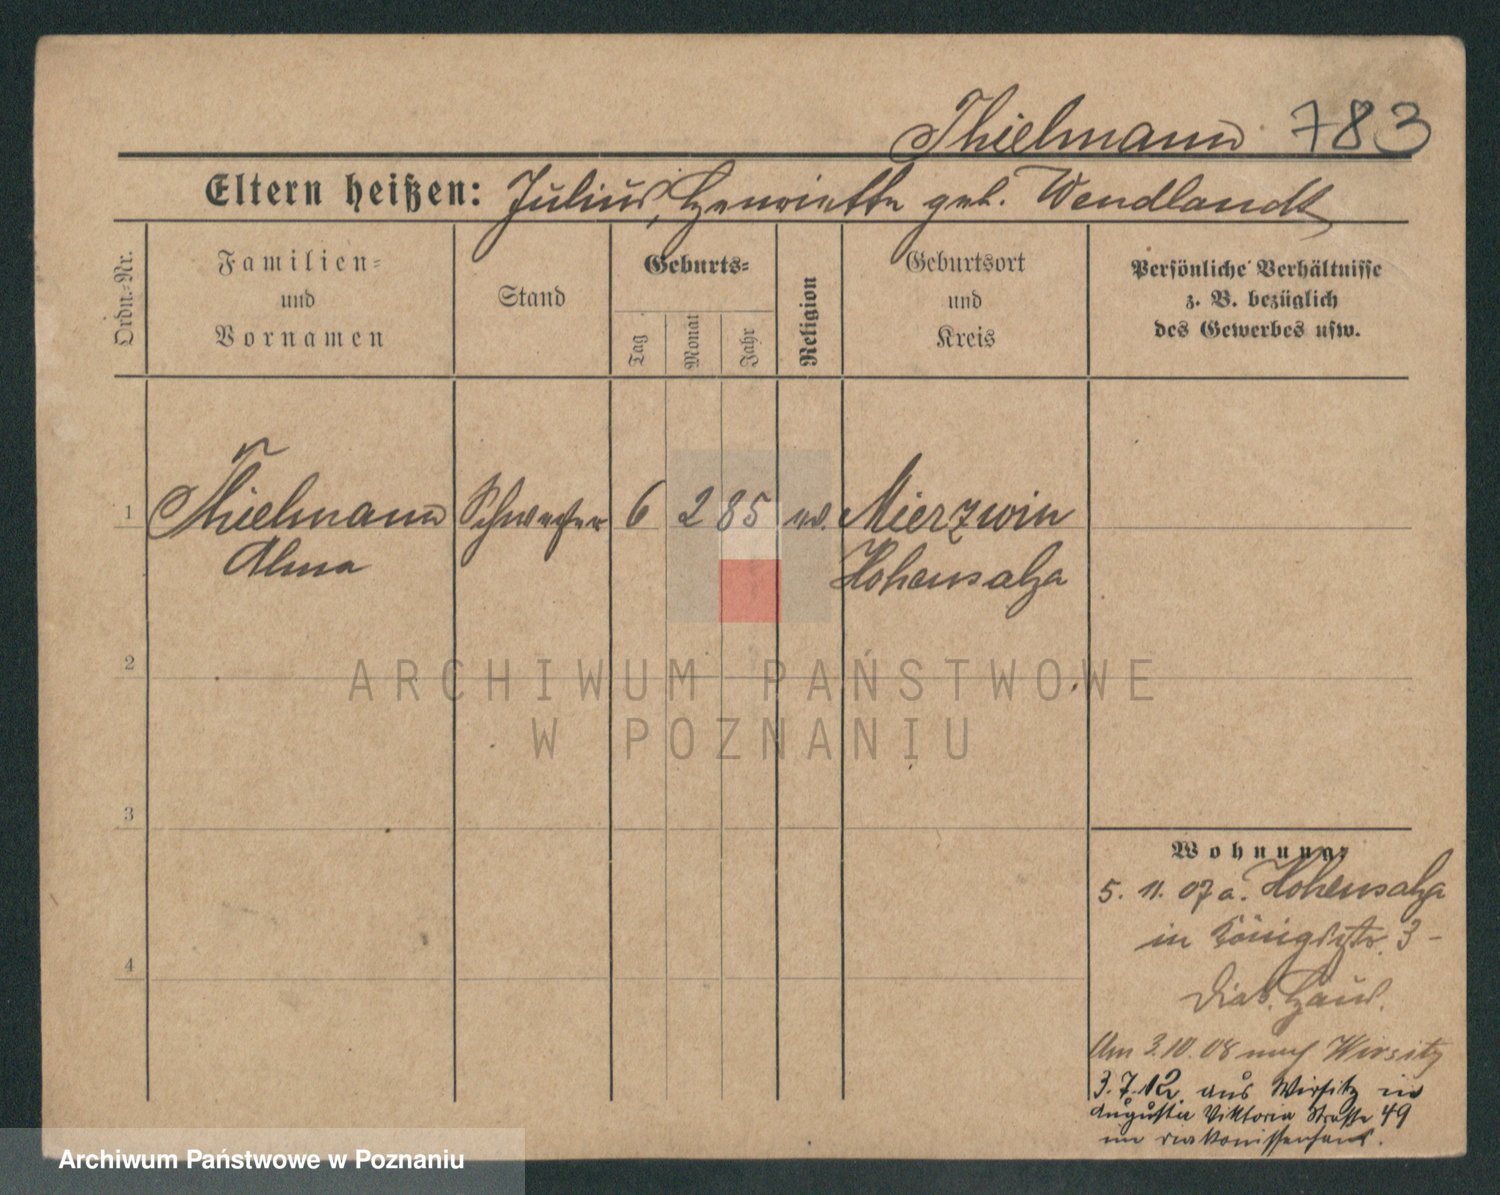 Thielmann 783
Eltern heißen: Julius, Henriette geb. Wendlandt
Ordn.-Nr.
Familien-
und
Vornamen
Stand
Geburts-
Tag
Monat
Jahr
Religion
Geburtsort
und
Kreis
Persönliche Verhältnisse
z. B. bezüglich
des Gewerbes usw.
1 Thielmann Schwester 6 2 85 ev. Mierzwin
Alma Hohensalza
2
ARCHIWUM PAŃSTWOWE
W POZNANIU
3
Wohnung
5. 11. 07 a. Hohensalza
in Königstr. 3 -
4
Diak. Haus.
Am 3.10.08 nach Wirsitz
3.7.12. aus Wirsitz in
Augusta Viktoria Straße 49
im Diakonissenhaus.
Archiwum Państwowe w Poznaniu